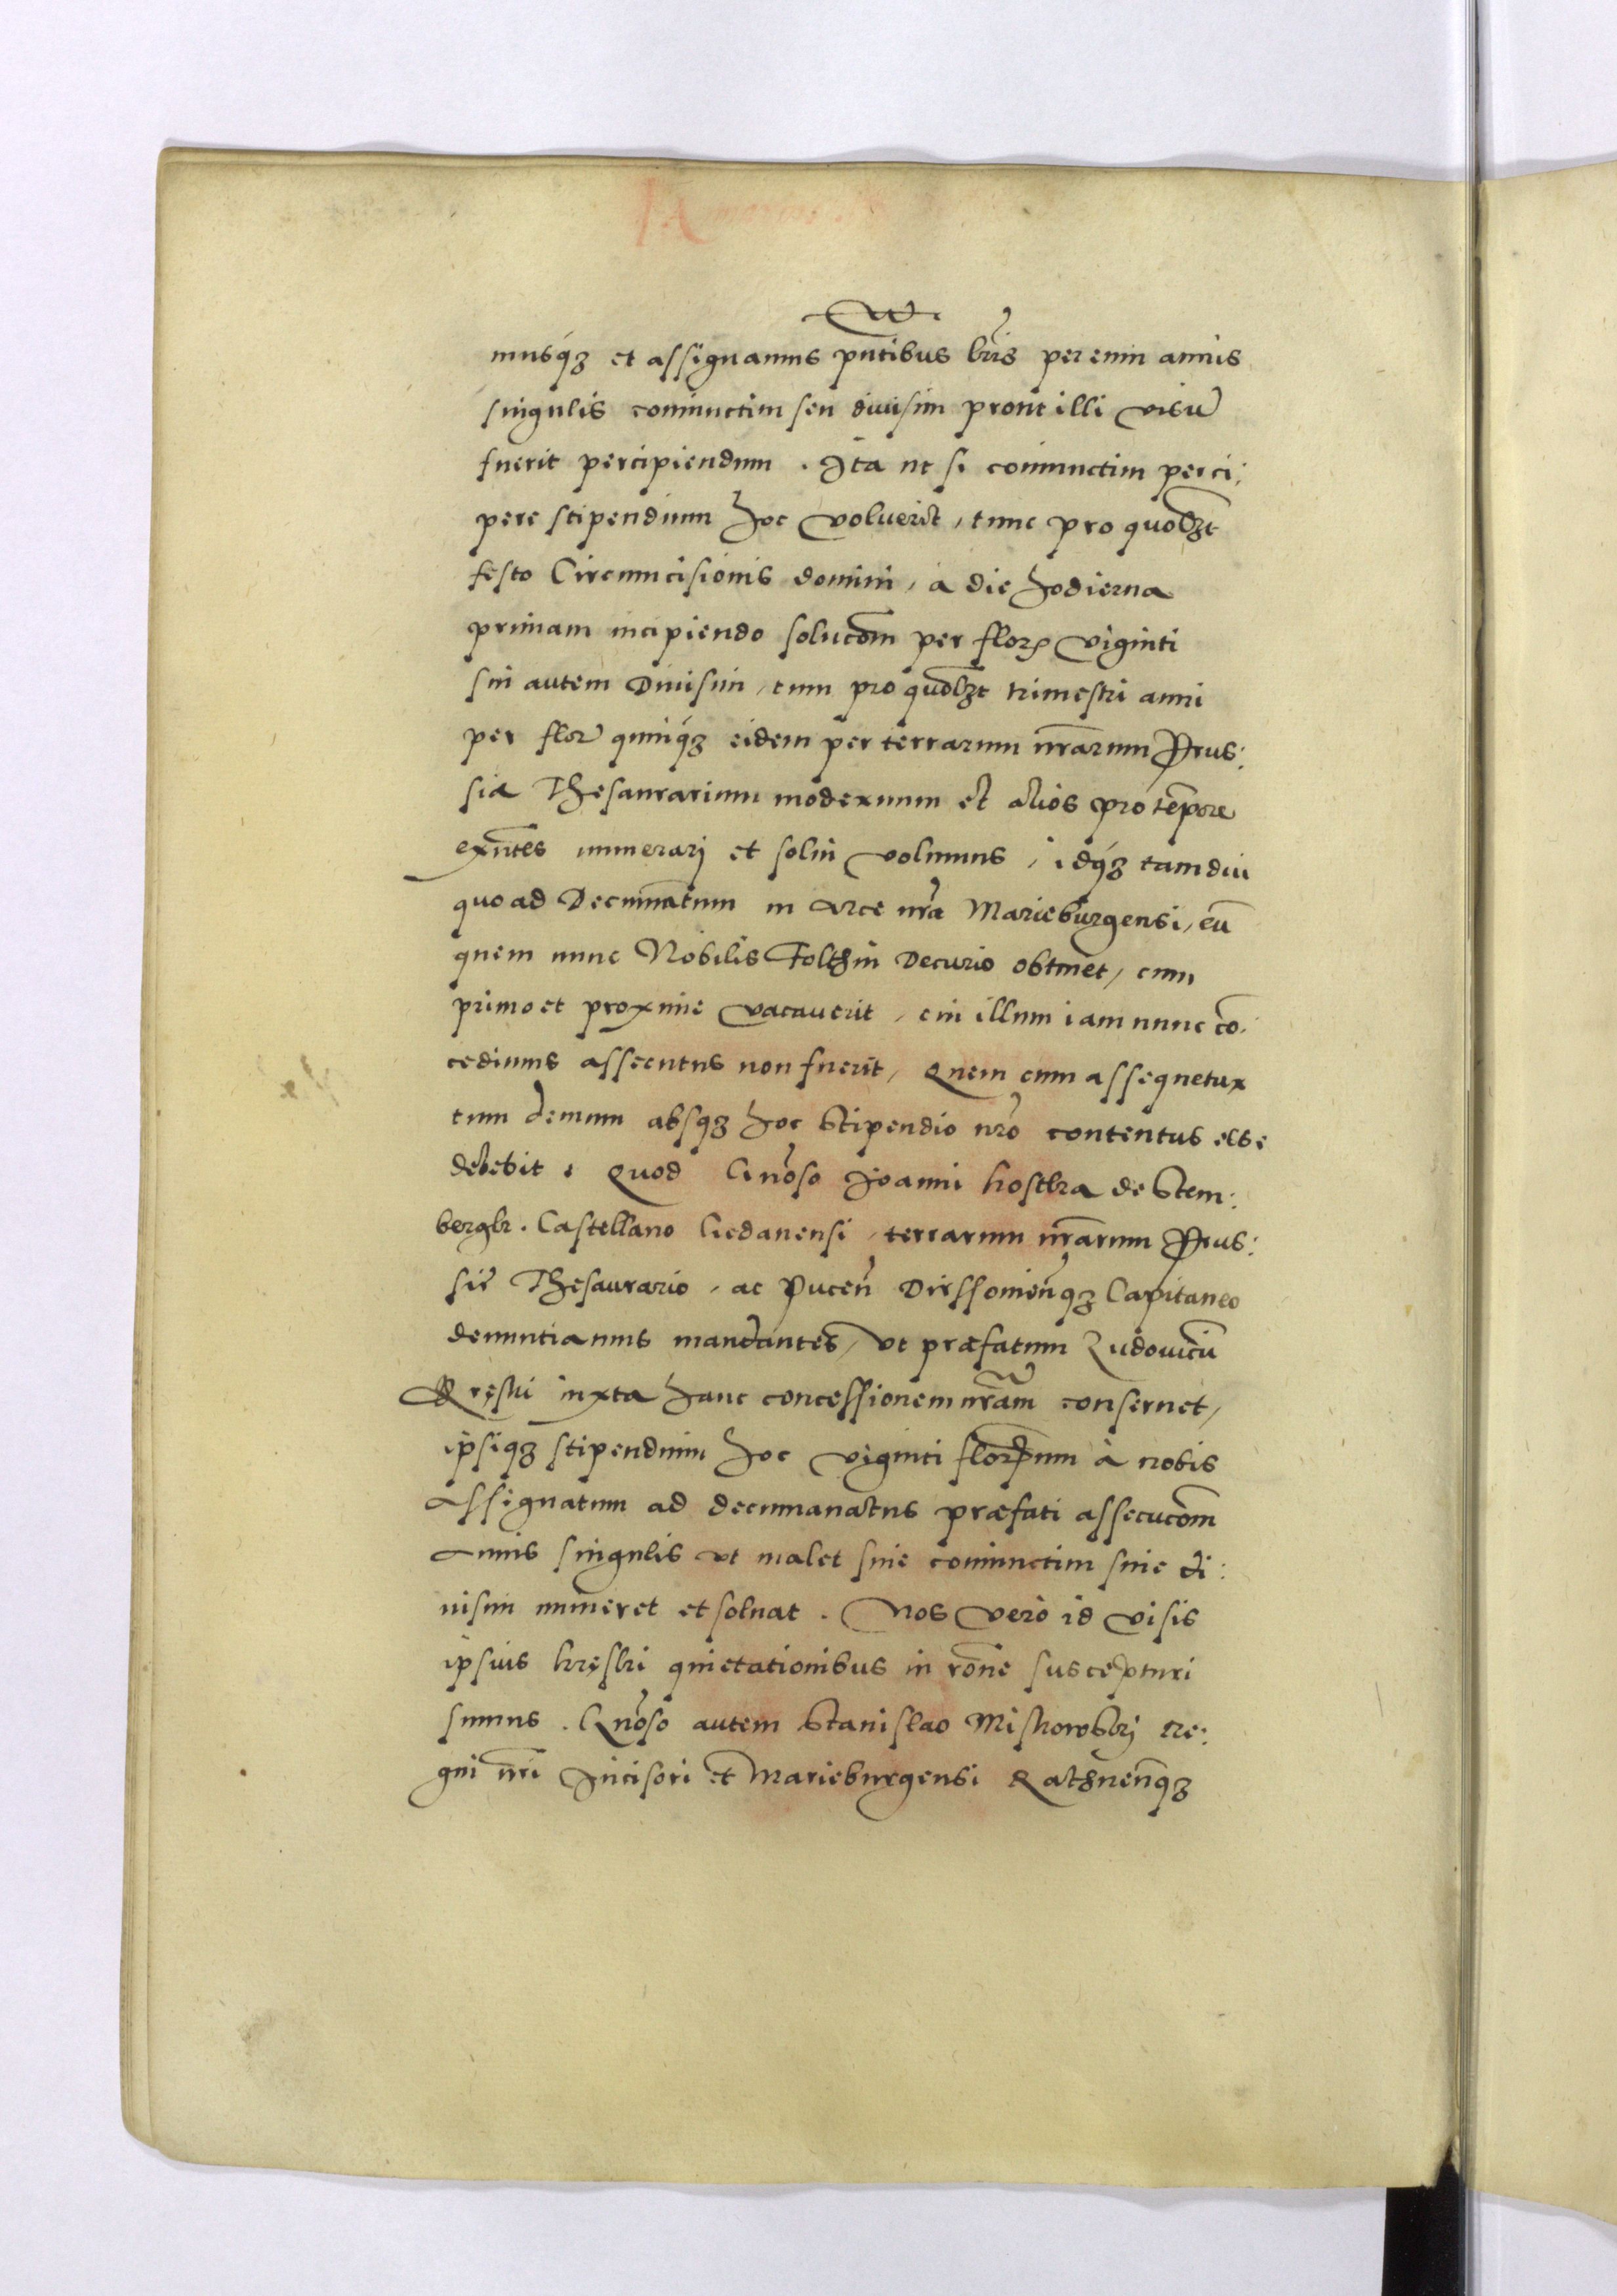 musq́ꝫ et assignamus pñtibus lr̃is per eum annis
singulis coniunctim seu diuisim prout illi visũ
fuerit percipiendum. Ita ut si coniunctim perci:
pere stipendium hoc voluerit, tunc pro quolꝫt
festo Circumcisionis domini, à die hodierna
primam incipiendo solucõm per floꝝ viginti
sin autem Diuisim, tum pro quolꝫt trimestri anni
per flor̃ quinq́ꝫ eidem per terrarum nr̃arum Prus:
siæ Thesaurarium modernum et alios pro tempore
exñtes numerarj et solui volumus, idq́ꝫ tamdiu
quoad Decumanatum in Arce nr̃a Marieburgensi, eũ
quem nunc Nobilis Folthin Decurio obtinet, cum
primo et proxime vacauerit, cui illum iam nunc cõ:
cedimus assecutus non fuerit, Quem cum assequetur
tum demum absqꝫ hoc Stipendio nr̃o contentus esse
debebit. Quod Gñoso Joanni Kostka de Stem:
bergk. Castellano Gedanensi, terrarum nr̃arum Prus:
siæ Thesaurario, ac Puceñ Dirssouieñqꝫ Capitaneo
denuntiamus mandantes, vt præfatum Ludouicũ
Kręski iuxta hanc concessionem nr̃am conseruet,
ipsiqꝫ stipendium hoc viginti florenorum à nobis
Assignatum ad decumanatus præfati assecucõm
Annis singulis vt malet siue coniunctim siue di:
uisim numeret et soluat. Nos vero id visis
ipsius kręski quietationibus in rõne suscepturi
sumus. Gñoso autem Stanislao Miskowskj Re:
gni nr̃i Incisori et Marieburgensi Rathneñqꝫ